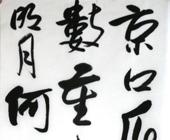 京口瓜
數重
明月何